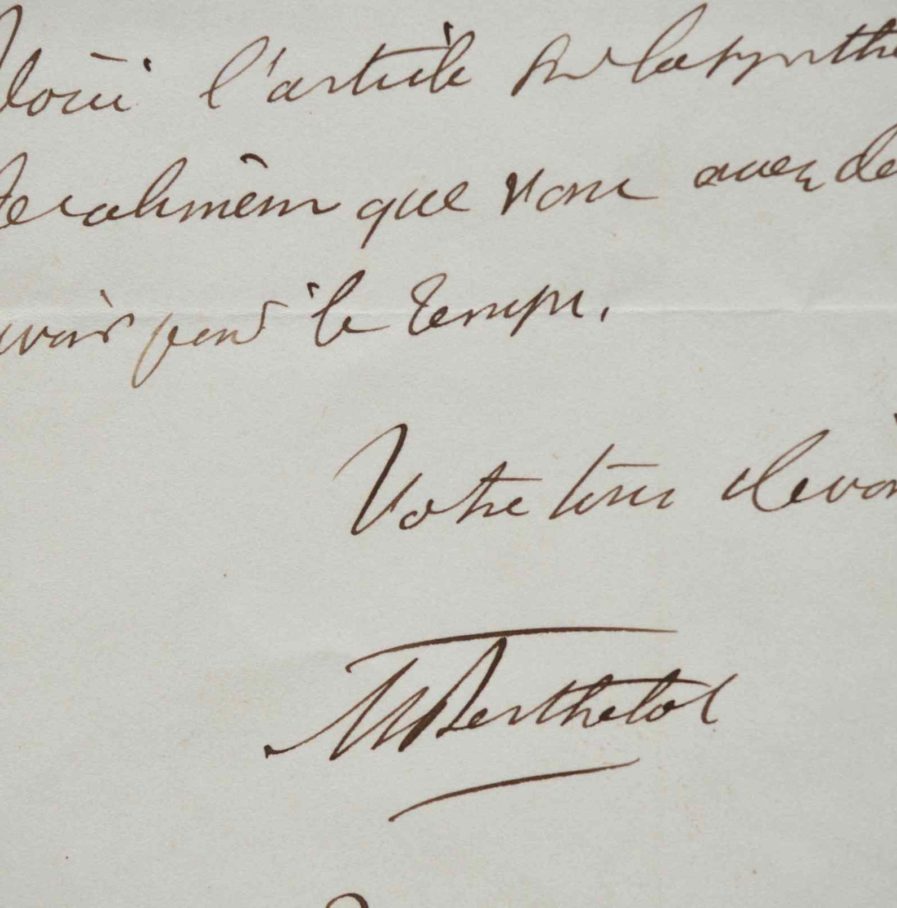 Voici l'article sur la synthè
des aliments que vous avez dé
avoir pour le Temps.
Votre tout dévou
MBerthelot